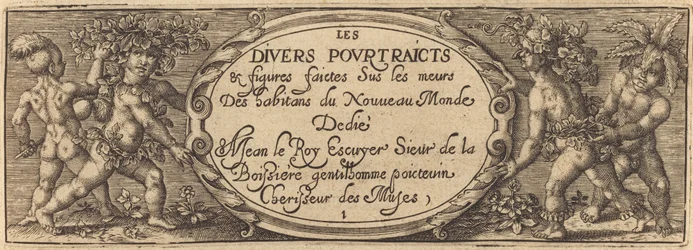 LES
DIVERS POVRTRAICTS
& figures faictes Sus les meurs
Des habitans du Nouueau Monde
Dedié
A Jean le Roy Escuyer Sieur de la
Boissière gentilhomme poicteuin
Cherisseur des Muses,
1